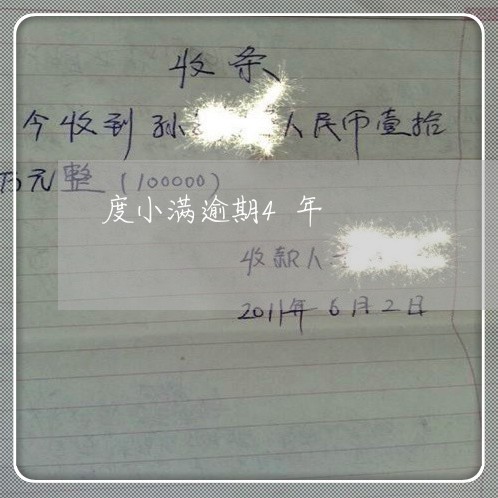 收条
今收到孙 人民币壹拾
万元整（100000）
度小满逾期4 年
收款人
2011年6月2日